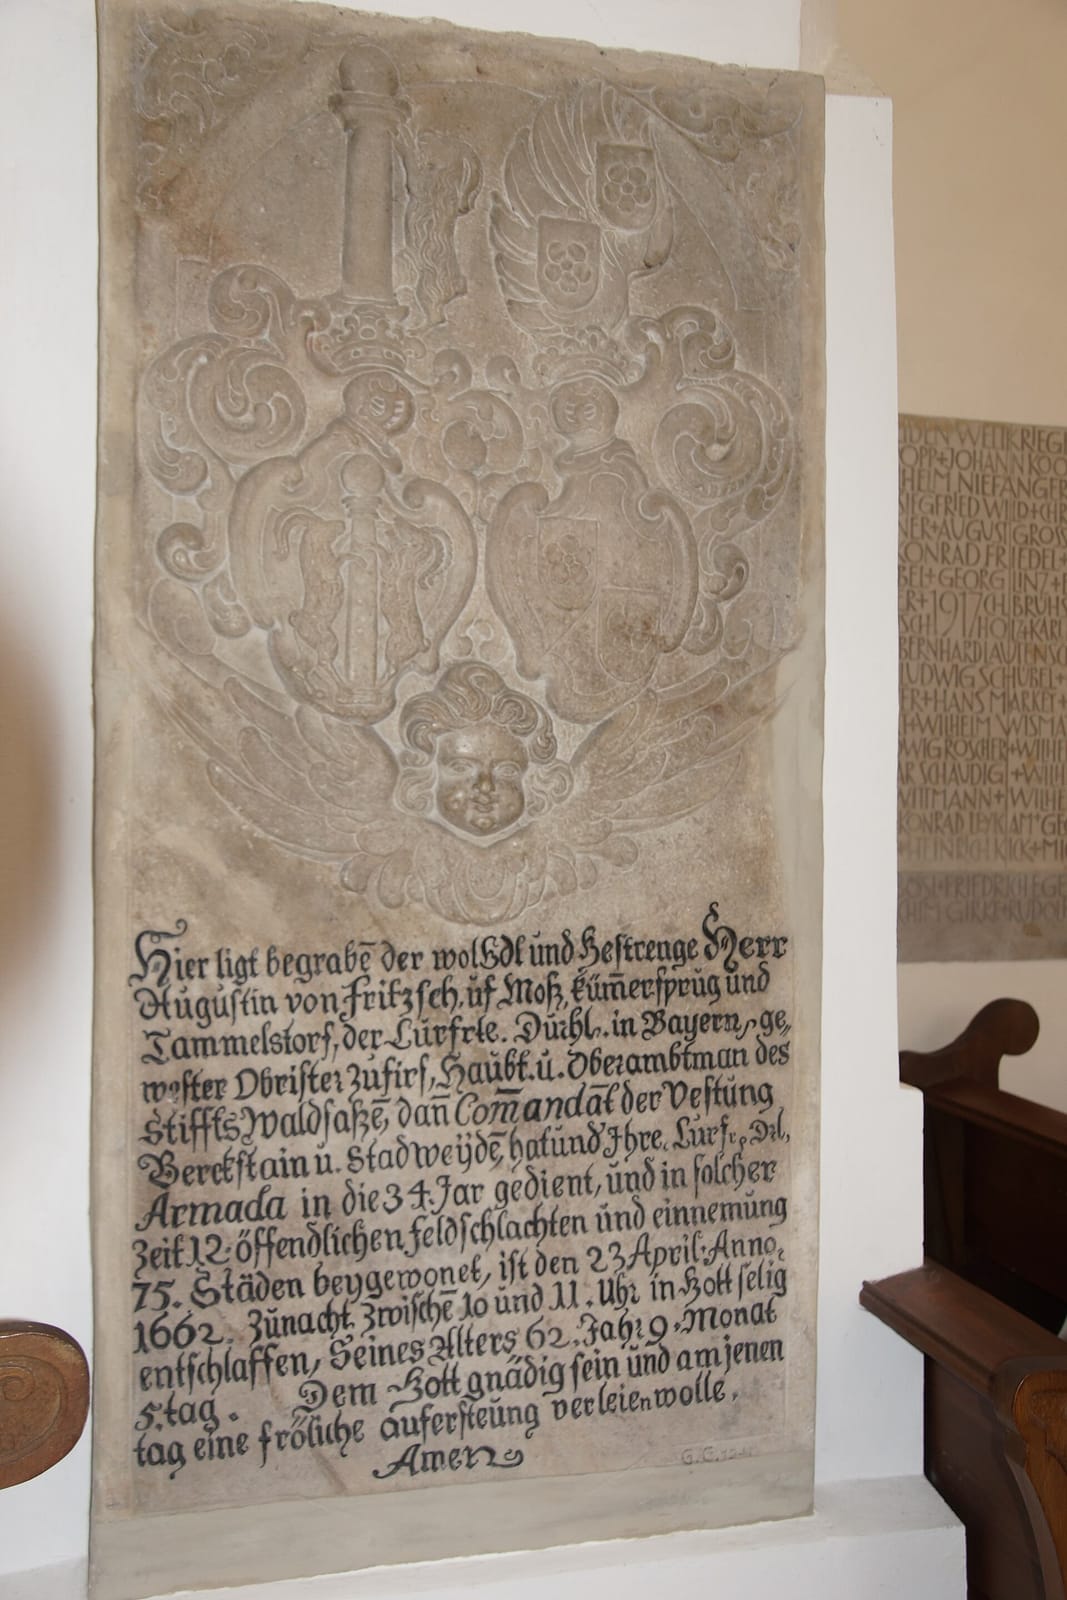 Hier ligt begrabē der wolEdl und Gestrenge Herr
Augustin von Fritzsch, uf Moß, kum̄ersprug und
Tammelstorf, der Curfrte. Durhl. in Bayern, ge„
wester Obrister zu firs, Haubt. u. Oberambtman des
Stiffts Waldsaßē, dan̄ Com̄andāt der Vestung
Berckstain u. Stadweÿdē, hat und Ihre. Curfr. Drl,
Armada in die 34. Jar gedient, und in solcher
Zeit 12. öffendlichen feldschlachten und einnemung
75. Städen beygewonet, ist den 23 April. Anno.
1662. Zunacht. Zwischē 10 und 11. Uhr in Gott selig
entschlaffen, Seines Alters 62. Jahr 9. Monat
5. tag. Dem Gott gnädig sein und am jenen
tag eine fröliche aufersteung verleien wolle.
Amen
G. G.
WELTKRIEGE
JOHANN
NIEFANGER
WILD +
AUGUST GROSS
KONRAD FRIEDEL +
GEORG LINZ +
1917 CH. BRÜHS
HOLZ + KARL
BERNHARD LAUTENSCH
LUDWIG SCHÜBEL +
HANS MARKET +
WILHELM WISMA
RÖSCHER + WILHE
SCHAUDIG + WILH
WITTMANN + WILHE
KONRAD LEYKAM + GE
HEINRICH KICK + MI
FRIEDRICH EGE
GIRKE + RUDOL